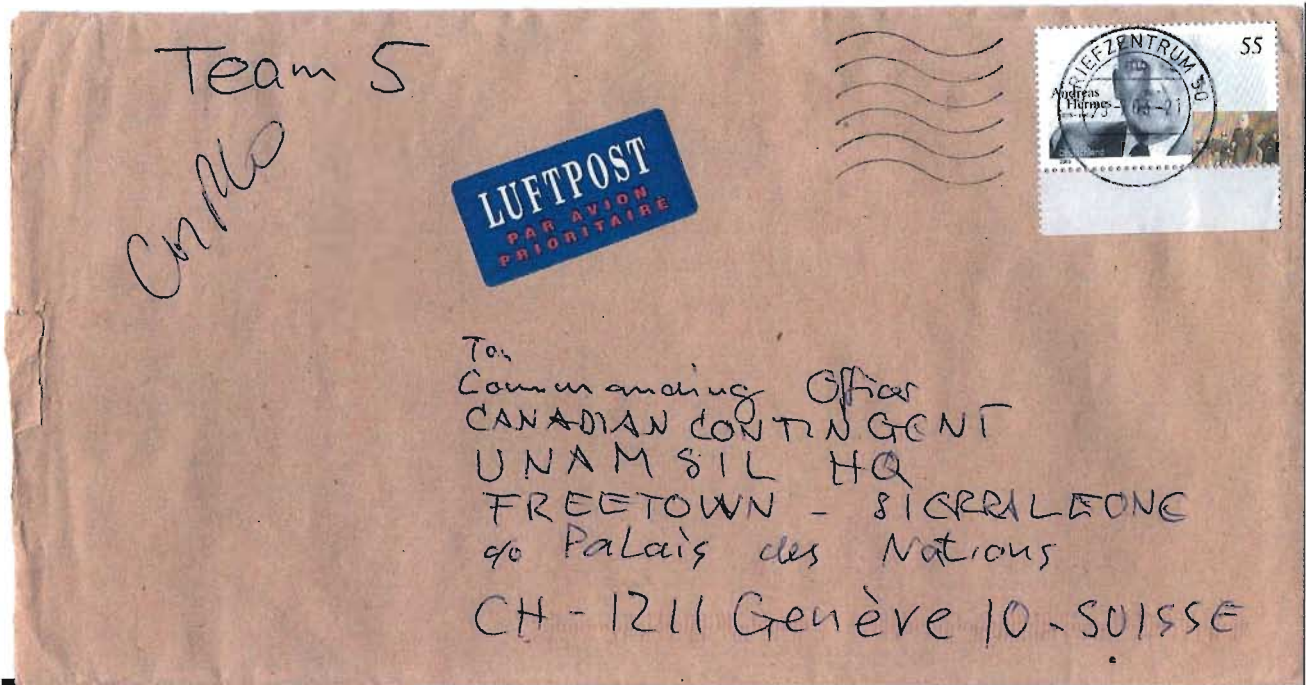 Team 5
LUFTPOST
PAR AVION
PRIORITAIRE
BRIEFZENTRUM 50
55
Andreas
Hermes
Deutschland
To,
Commanding Officer
CANADIAN CONTINGENT
UNAMSIL HQ
FREETOWN - SIERRALEONE
c/o Palais des Nations
CH - 1211 Genève 10 - SUISSE